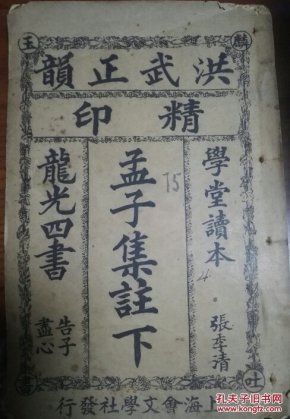 麟
玉
洪武正韻
精印
學堂讀本
張季清
孟子集註下
75
龍光四書
告子
盡心
吐
上海會文學社發行